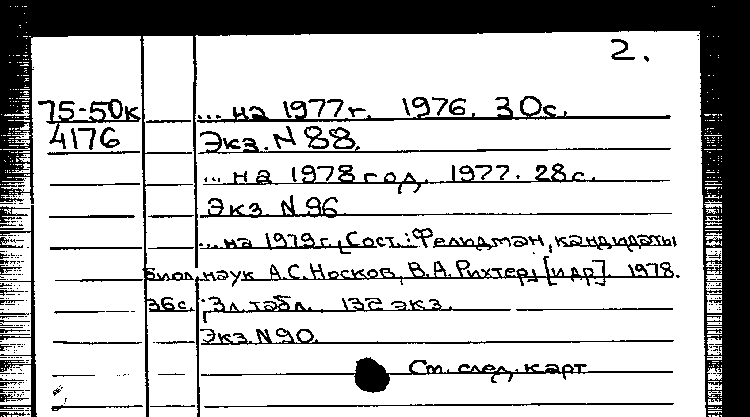 2.
75-50к ... на 1977г. 1976. 30с.
4176 Экз. N 88.
... на 1978 год. 1977. 28с.
Экз. N 96
... на 1979г. [Сост.: Фельдман, кандидаты
биол. наук А.С. Носков, В.А. Рихтер, [и др]. 1978.
36с.; 3л. табл. 132 экз.
Экз. N 90.
См. след. карт